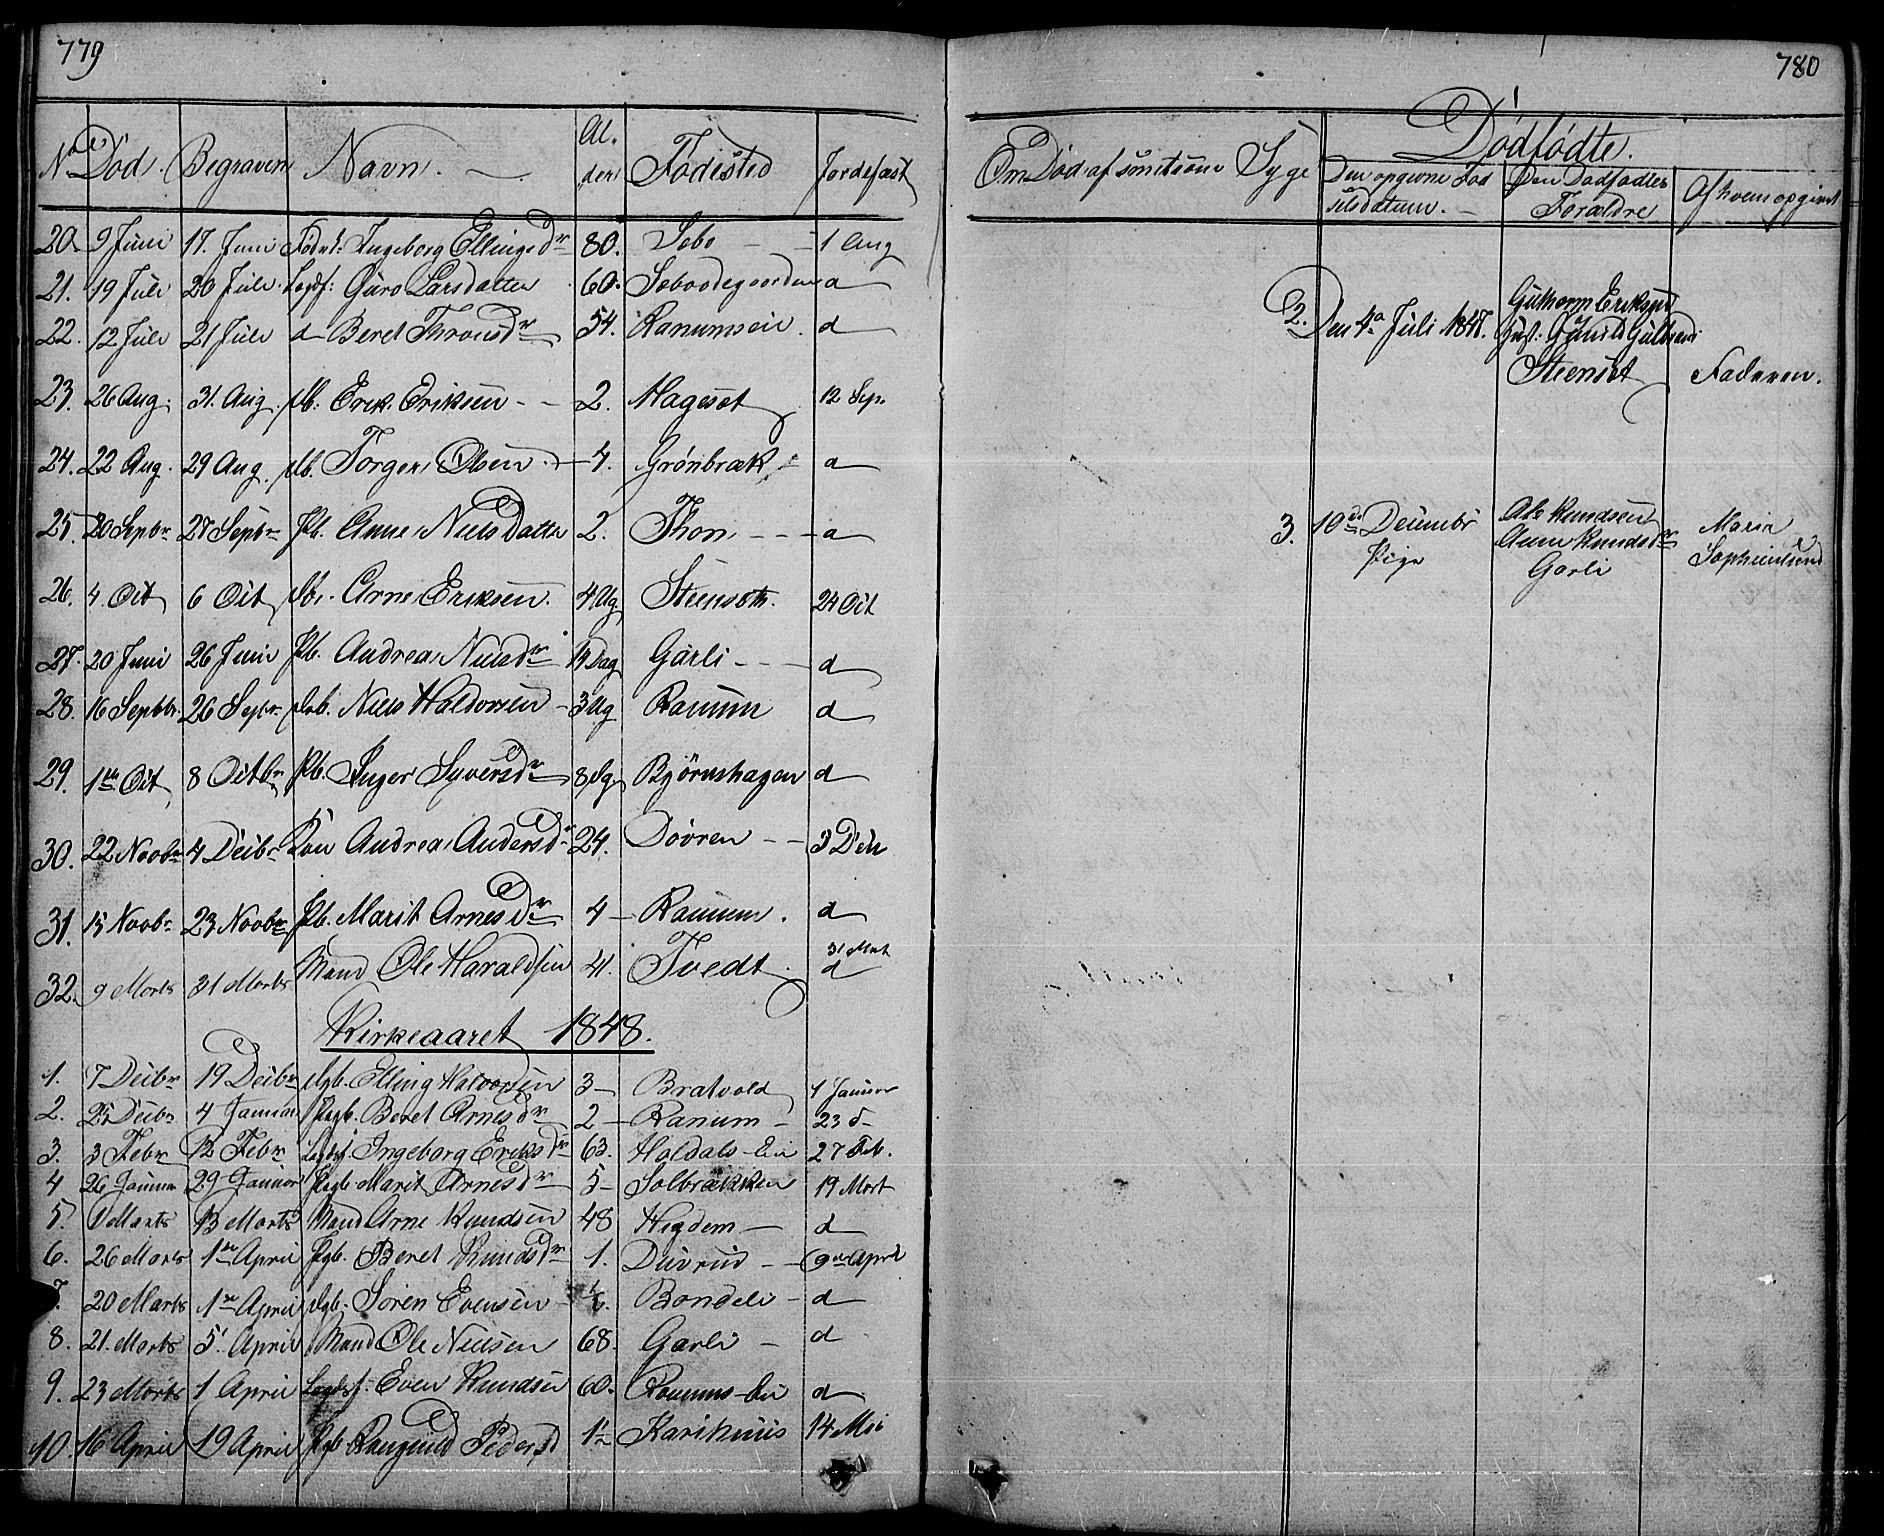 779
No Död. Begraven Navn. Al-der Födested Jordefæst
20. 9 Juni 17. Juni Födrd: Ingeborg Ellingsdr 80. Sebo - - 1 Aug
21. 19 Juli 20 Juli Lægdf: Guro Larsdatter 60. Seboodegaarden d
22. 12 Juli 21 Juli d Beret Thronsdr 54. Ranumseie d
23. 26 Aug. 31. Aug. db. Erik Eriksen - - 2. Hageset 12 Sepr
24. 22 Aug. 29 Aug. db. Torger Olsen - 4. Grönbræk - d
25. 20 Sepbr 27 Sepbr Pb. Anne Niels Datter 2. Thon - - - d
26. 4. Oct 6 Oct db. Arne Eriksen. 4 Ug Steensæth. 24 Oct
27. 20 Juni 26 Juni Pb. Andrea Nielsdr 14 Dag Garli - - - d
28. 16 Septbr. 26 Sepbr db. Niels Haldorsen - 3 Ug Ranum d
29. 1ste Oct 8 Octbr Pb. Inger Syversdr 8 Dg Björnshagen d
30. 22 Novbr 4 Decbr Kone Andrea Andersdr 24. Dovren - - 3 Dec
31. 15 Novbr 23 Novbr Pb. Marit Arnesdr 4 - Ranum. d
32. 9 Marts 31 Marts Mand Ole Haraldsen 41. Tvedt 31 Mart d
Kirkeaaret 1848.
1. 7 Decbr 19 Decbr dgb. Elling Halvorsen 3 - Bratvold 1 Januar
2. 25 Decbr 4 Januar Pgb. Beret Arnesdr 2 - Ranum - 23 d-
3. 3 Febr 12 Febr Lægdsf. Ingeborg Eriksdr 63. Haldals-Eie 27 Feb.
4 26 Januar 29 Januar Pgb Marit Arnesdr 5 - Solbrækken 19 Mart
5. 1 Marts 13 Marts Mand Arne Knudsen 48 Hegdem - d
6. 26 Marts 1ste April Pgb. Beret Knudsdr 1. Duvrud - - 9de April
7. 20 Marts 1ste April dgb. Sören Evensen - Bondeli - d
8. 21. Marts 5' April Mand Ole Nielsen 68. Garli - d
9. 23 Marts 1 April Lægdsf. Even Knudsen 60. Ranums-Eie d
10. 16 April 19 April Pgb Rangnild Pedersd 1½ Karihuus 14 Mai
780
Om Död af smitsom Syge
Dödfödte.
Den opgivne Födselsdatum. - Den Dödfödtes Forældre Af hvem opgivet
2. Den 4de Juli 1847. Guthorm Eriksen
og Hust: Gunild Gulbrand
Steensæt Faderen.
3. 10de December Ole Knudsen Maria
Pige Anne Knudsdr Sophieslund
Garli